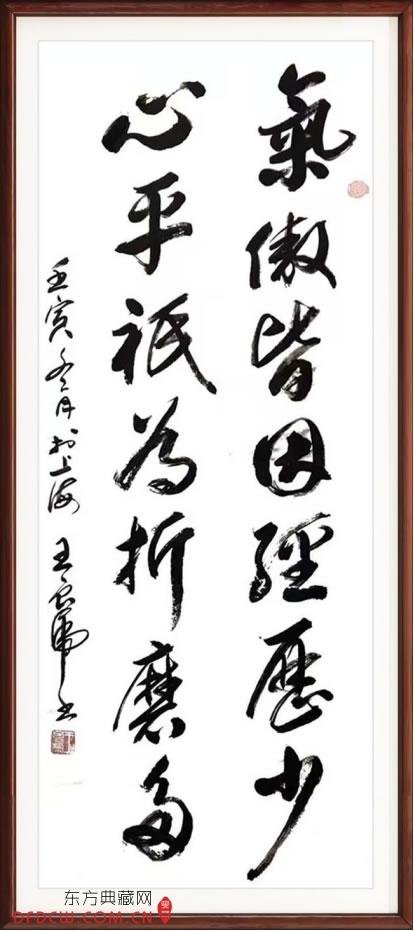 氣傲皆因經歷少
心平祇為折磨多
壬寅冬月於上海 王
东方典藏网
DFDCW.COM.CN